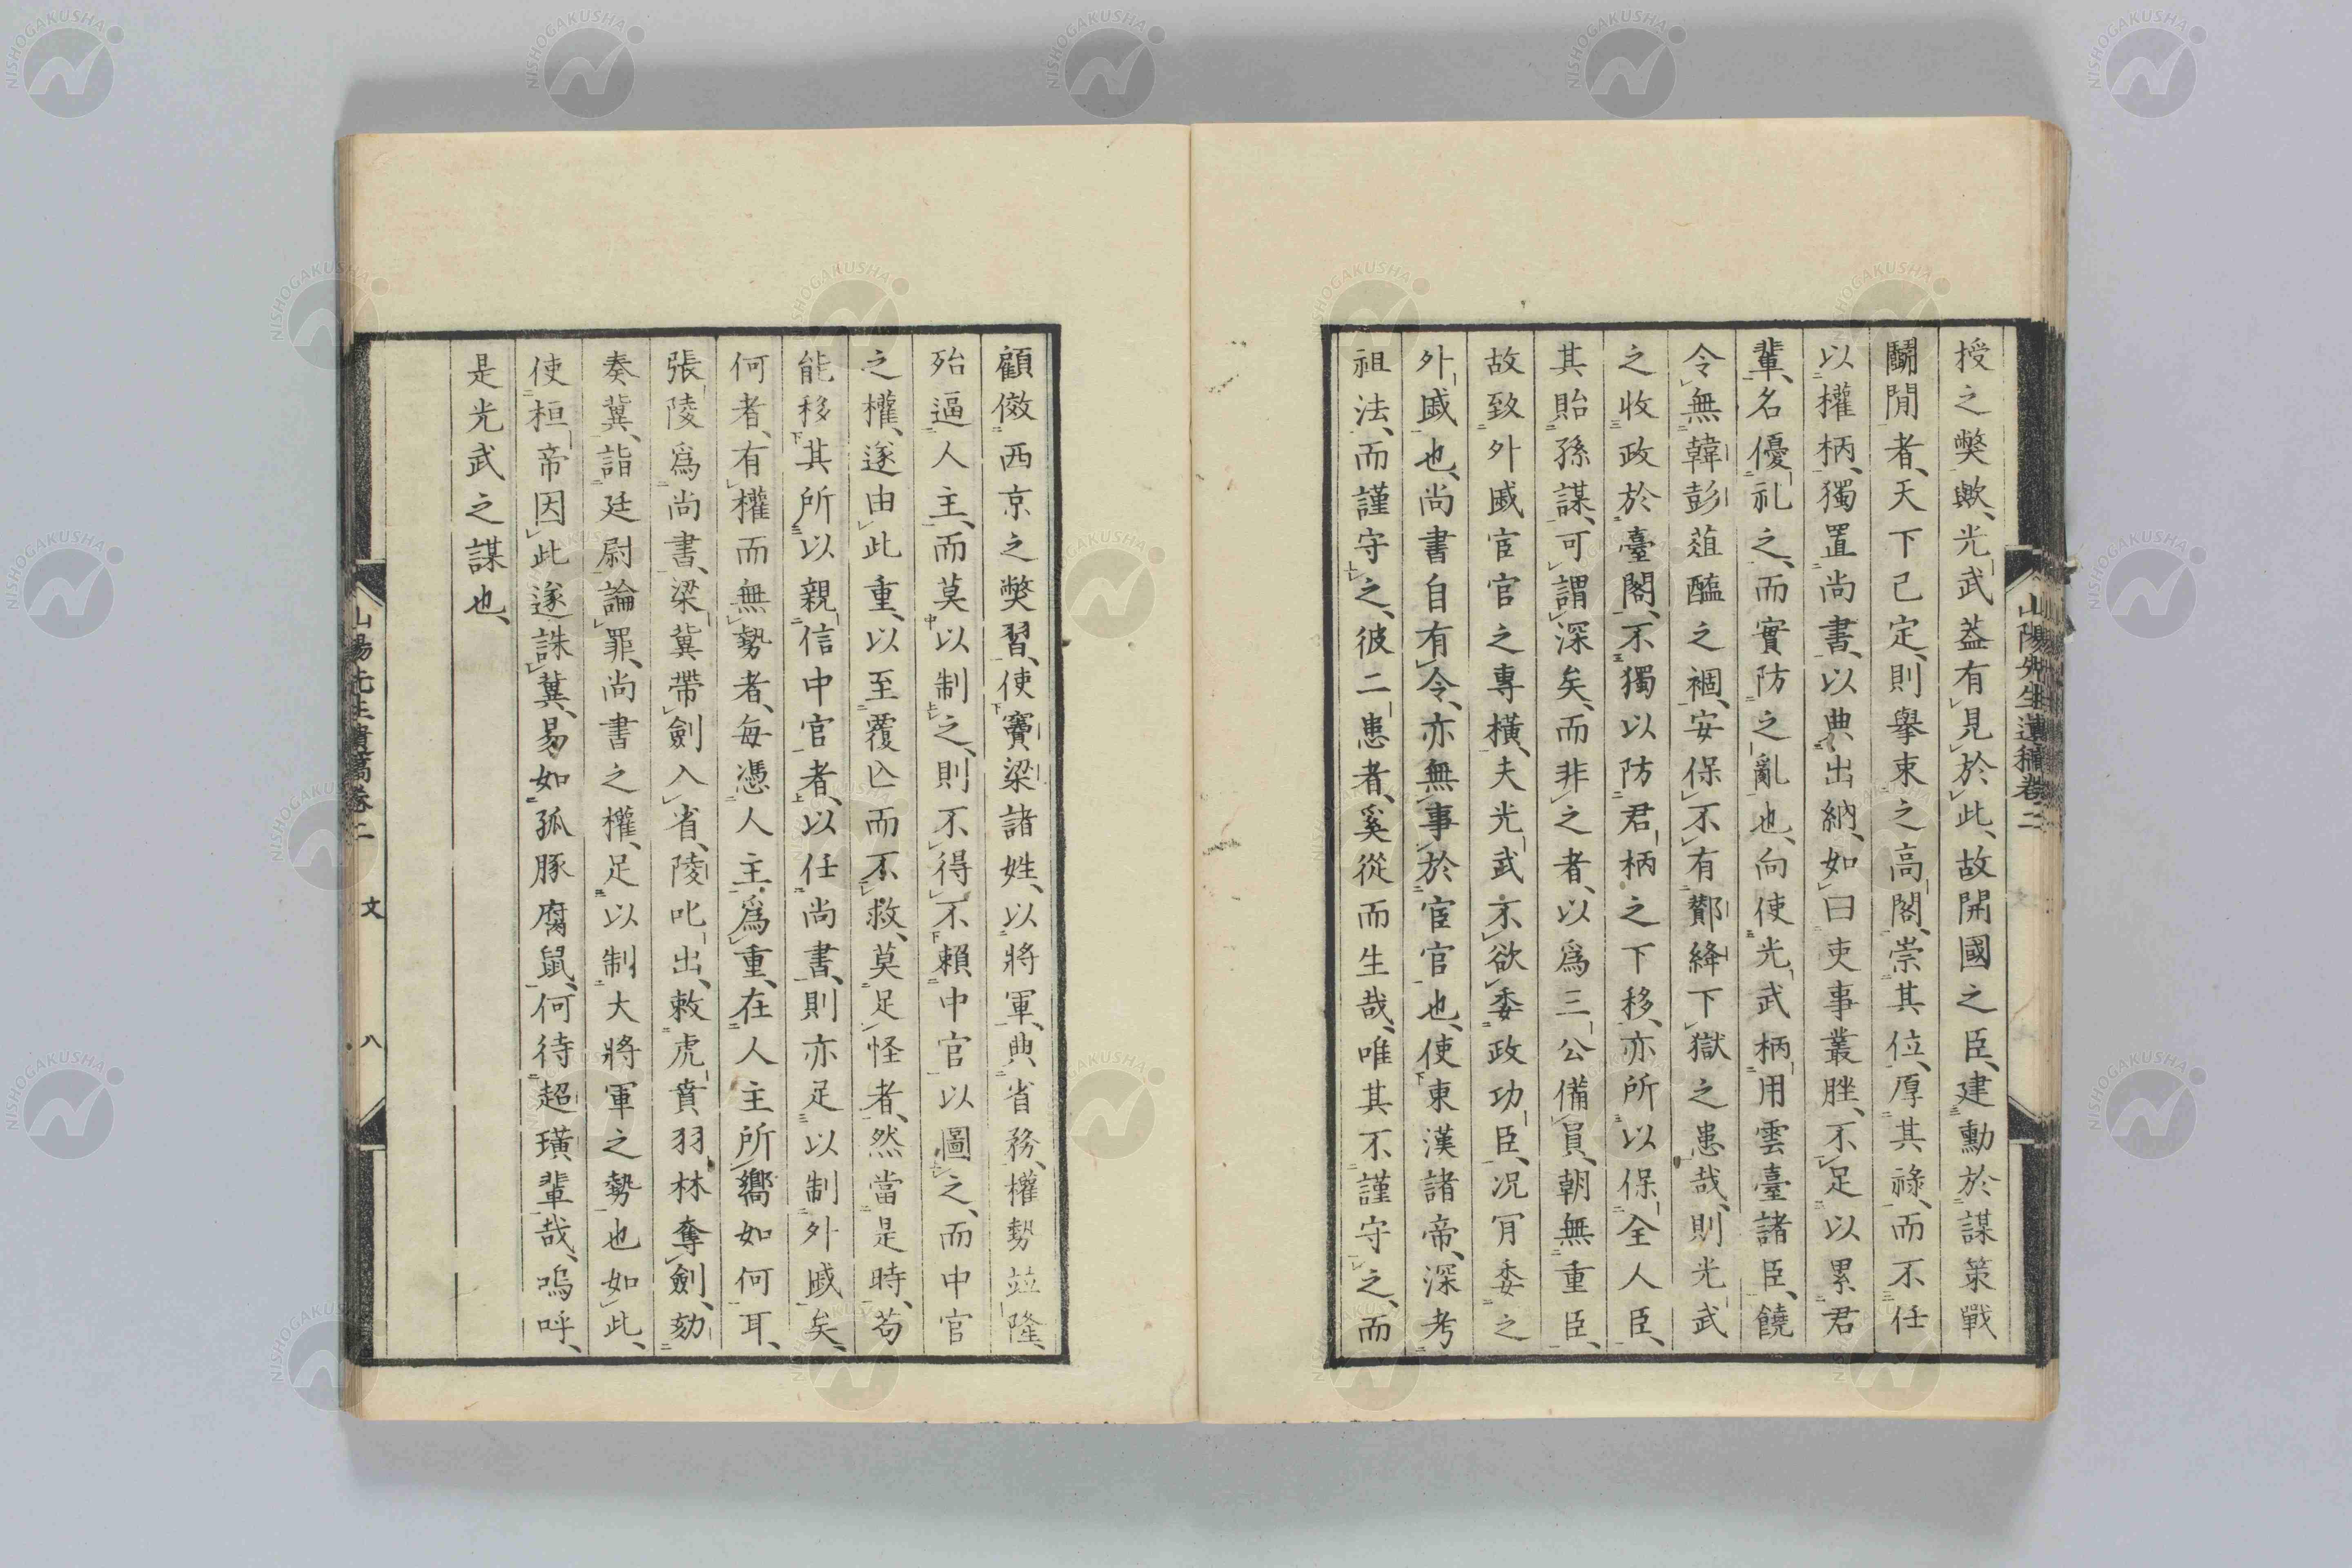 授之弊歟、光武蓋有見於此、故開國之臣、建勳於謀策戰
鬭閒者、天下已定、則擧束之高閣、崇其位、厚其祿、而不任
以權柄、獨置尚書、以典出納、如曰吏事叢脞、不足以累君
輩、名優礼之、而實防之亂也、向使光武柄用雲臺諸臣、饒
令無韓彭葅醢之禍、安保不有酇絳下獄之患哉、則光武
之收政於臺閣、不獨以防君柄之下移、亦所以保全人臣、
其貽孫謀、可謂深矣、而非之者、以爲三公備員、朝無重臣、
故致外戚宦官之專橫、夫光武不欲委政功臣、况肎委之
外戚也、尚書自有令、亦無事於宦官也、使東漢諸帝、深考
祖法、而謹守之、彼二患者、奚從而生哉、唯其不謹守之、而
山陽先生遺稿卷二
顧倣西京之弊習、使竇梁諸姓、以將軍、典省務、權勢竝隆、
殆逼人主、而莫以制之、則不得不賴中官以圖之、而中官
之權、遂由此重、以至覆亾而不救、莫足怪者、然當是時、苟
能移其所以親信中官者、以任尚書、則亦足以制外戚矣、
何者、有權而無勢者、每憑人主爲重、在人主所嚮如何耳、
張陵爲尚書、梁冀帶劍入省、陵叱出、敕虎賁羽林奪劍、劾
奏冀、詣廷尉論罪、尚書之權、足以制大將軍之勢也如此、
使桓帝因此遂誅冀、易如孤豚腐鼠、何待超璜輩哉、嗚呼、
是光武之謀也、
山陽先生遺稿卷二 文 八
NISHOGAKUSHA